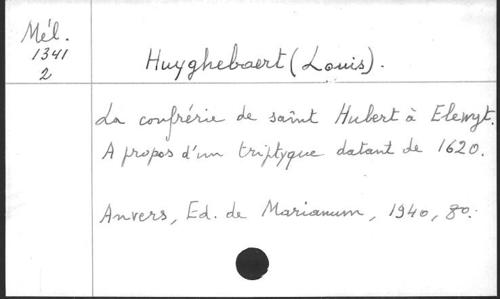 Mél.
1341
2
Huyghebaert (Louis).
La confrérie de saint Hubert à Elewyt.
A propos d'un triptyque datant de 1620.
Anvers, Ed. de Marianum, 1940, 8o.